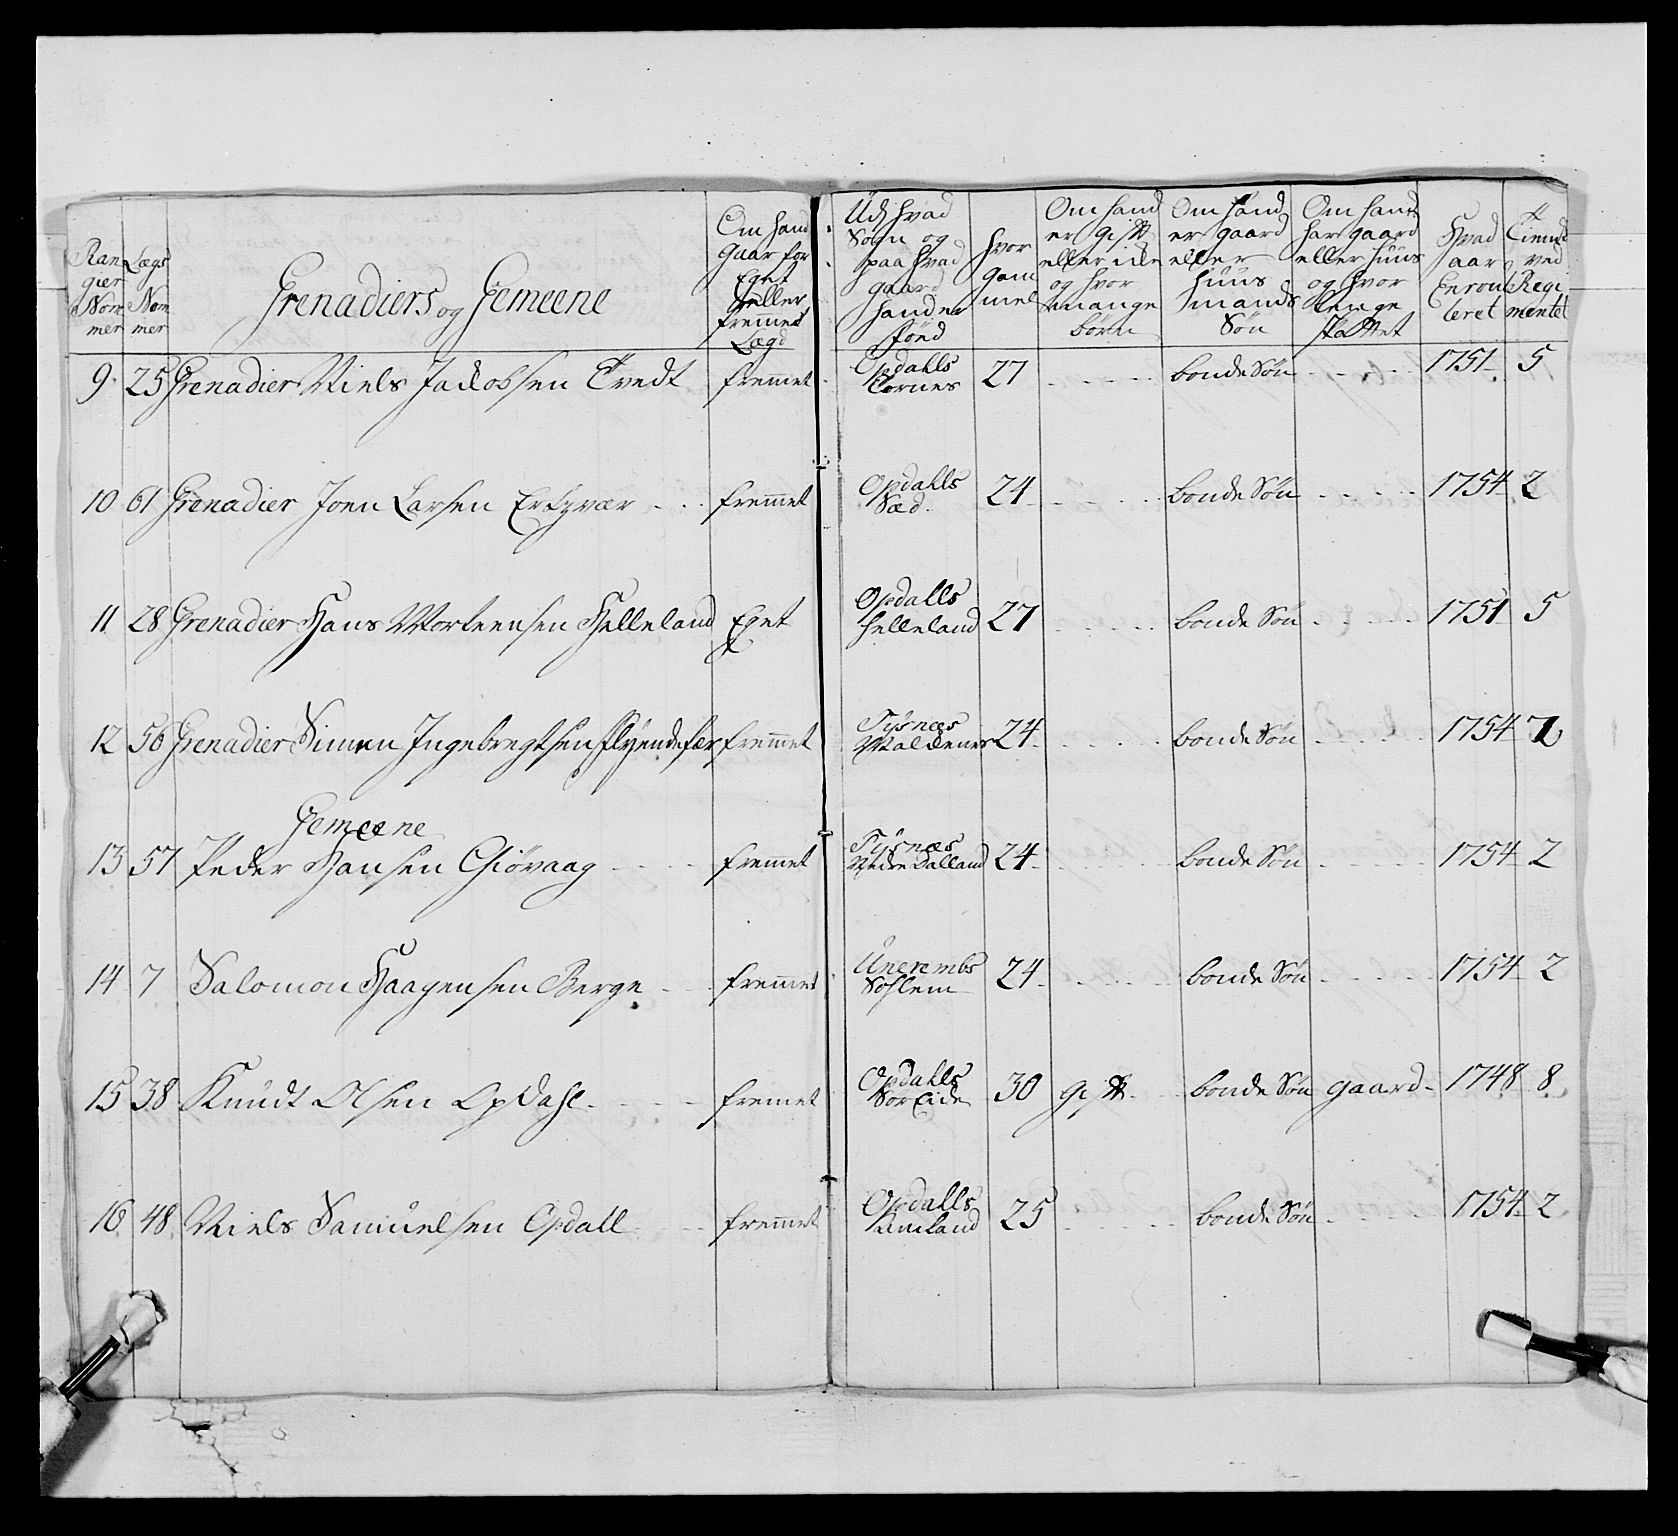 Ran gier Nom mer | Lægs Nom mer | Grenadiers og Gemeene | Om hand Gaar for Eget Eller fremmet Lægd | Ud hvad Sogn og paa hvad gaard hand er fönd | hvor gam mel | Om hand er gift eller icke og hvor mange börn | Om hand er gaard eller huus mands Søn | Om hand har gaard eller huus og hvor lenge skattet | Hvad aar Enrou leret | Tienist ved Regi mentet
9 25 Grenadier Niels Jacobsen Tvedt fremet Opdalls Tornes 27 bonde Søn 1751 5
10 61 Grenadier Joen Larsen Ertzvær fremmet Opdalls Sæd. 24 bonde Søn 1754 2
11 28 Grenadier Hans Morteensen Helleland Eget Opdalls helleland 27 bonde Søn 1751 5
12 56 Grenadier Simen Ingebregtsen flyendefær fremmet Tysnæs Waldenes 24 bonde Søn 1754 2
Gemeene
13 57 Peder Hansen Giövaag fremet Tysnæs Nedre Dalland 24 bonde Søn 1754 2
14 7 Salomon Haagensen Berge fremmet Unerembs 24 bonde Søn 1754 2
15 38 Knudt Olsen Opdahl fremet Opdalls Sør Eide 30 gift bonde Søn gaard 1748 8
16 48 Niels Samuelsen Opdall fremmet Opdalls 25 bonde Søn 1754 2